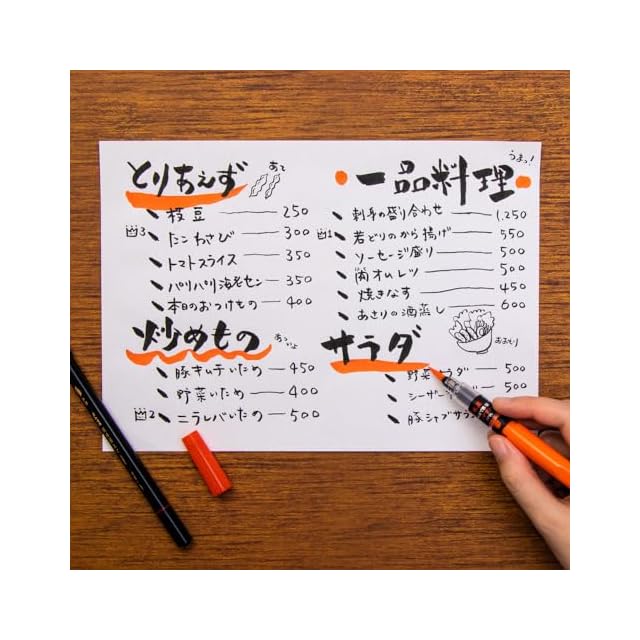 とりあえず
あて
枝豆 250
3 たこわさび 300
トマトスライス 350
パリパリ海老セン 350
本日のおつけもの 400
炒めもの
あっついよ
豚キムチいため 450
野菜いため 400
2 ニラレバいため 500
一品料理
うまっ!
刺身の盛り合わせ 1,250
1 若どりのから揚げ 550
ソーセージ盛り 500
肉オムレツ 500
焼きなす 450
あさりの酒蒸し 600
サラダ
おおもり
野菜サラダ 500
シーザー 500
豚シャブサラ